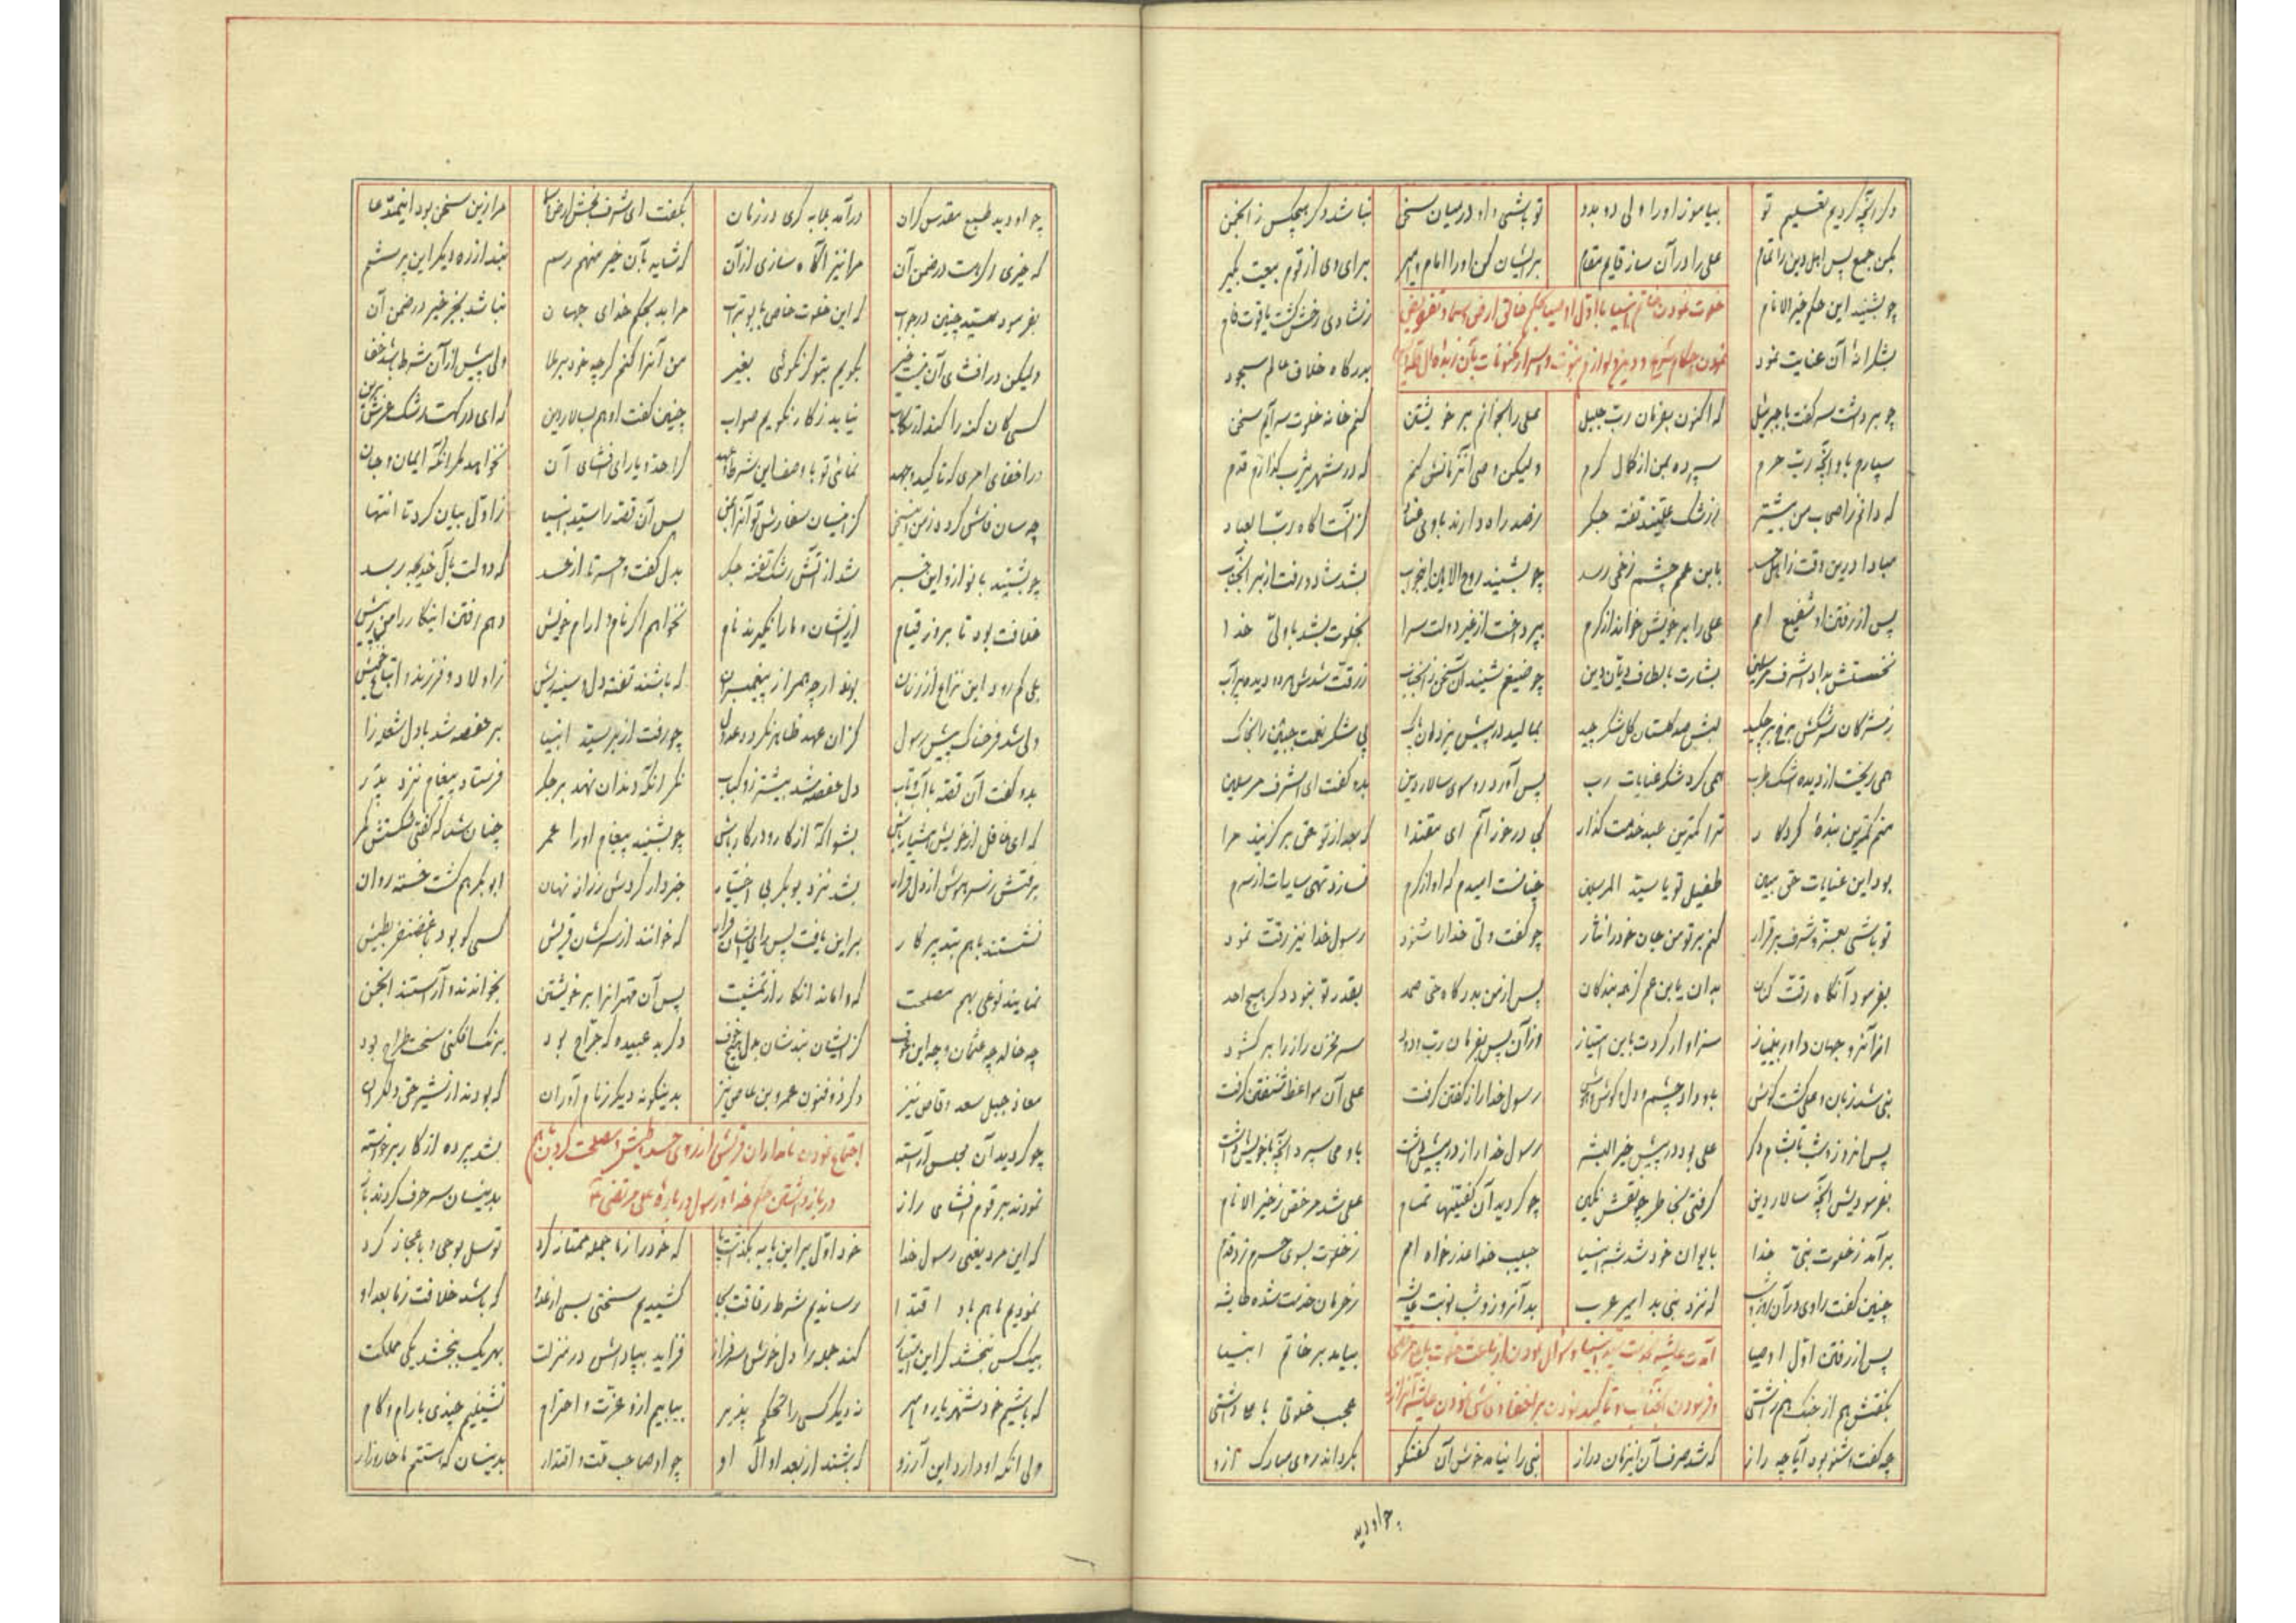 دگر آنچه کردیم تعلیم تو بیاموز او را ولی دو بدو تو باشی و او در میان سخن نباشد دگر هیچکس ز انجمن
بکن جمع پس اهل دین را تمام علی را در آن ساز قایم مقام بر ایشان کن او را امام و امیر برای وی از قوم بیعت بگیر
چو بشنید این حکم خیر الانام ز شادی رخش گشت یاقوت فام
خلوت نمودن خاتم انبیا با اول اوصیا بحکم خالق ارض و سما و تفویض
بشکرانهٔ آن عنایت نمود بدرگاه خلاق عالم سجود
نمودن
چو برداشت سر گفت با جبرئیل که اکنون بفرمان رب جلیل علی را بخوانم بر خویشتن کنم خانه خلوت سرایم سخن
سپارم باو آنچه رب حرم سپرده بمن از کمال کرم ولیکن وصی آنزمانش کنم که در شهر یثرب گذارم قدم
که دانم ز اصحاب من بیشتر ز رشک علی‌اند تفته جگر
مبادا درین وقت ز اهل حسد بابن عمم چشم زخمی رسد چو بشنید روح الامین این جواب بشد شاد و رفت از بر آنجناب
پس از رفتن او شفیع امم علی را بر خویش خواند از کرم بپرداخت از غیر دولت سرا بخلوت بشد با ولی خدا
نخستش بداد اشرف مرسلین بشارت بالطاف دیان دین
ز مژگان سرشکش برخ بر چکید لبش صد گلستان گل شکر چید بمالید در پیش یزدان پاک پی شکر نعمت جبین را بخاک
همی ریخت از دیده اشک طرب همی کرد شکر عنایات رب پس آورد رو سوی سالار دین بدو گفت ای اشرف مرسلین
منم کمترین بندهٔ کردگار ترا کمترین عبد خدمت گذار کی در خور آنم ای مقتدا که بعد از تو حق برگزیند مرا
بود این عنایات حق مبین طفیل تو یا سید المرسلین چنانست امیدم که او از کرم نسازد تهی سایه‌ات از سرم
تو باشی بعز و شرف برقرار کنم بر تو من جان خود را نثار چو گفت ولی خدا را شنود رسول خدا نیز رقت نمود
بفرمود آنگاه رقت کنان بدان یا بن عم کز همه بندگان پس از من بدرگاه حی صمد بقدر تو نبود دگر هیچ احد
از آنرو جهان داور بی‌نیاز سزاوار کردت باین امتیاز وز آن پس بفرمان رب ودود سر مخزن راز را بر گشود
نبی شد زبان و علی گشت گوش باو داد چشم و دل و گوش و هوش رسول خدا راز گفتن گرفت علی آن مواعظ شنفتن گرفت
پس آنروز و شب تا بشام دگر علی بود در پیش خیر البشر رسول خدا راز در پیش داشت باو می سپرد آنچه با خویش داشت
بفرمودیش آنچه سالار دین گرفتی بخاطر چو نقش نگین چو گردید آن گفتنیها تمام علی شد مرخص ز خیر الانام
برآمد ز خلوت نبی خدا بایوان خود شد شه انبیا حبیب خدا عذر خواه امم ز خلوت بسوی حرم زد قدم
چنین گفت راوی در آن روز و شب که نزد نبی بد امیر عرب بد آنروز و شب نوبت عایشه
پس از رفتن اول اوصیا بیامد بر خاتم انبیا
آمدن عایشه بخدمت سید انبیا و سؤال نمودن از باعث خلوت با علی مرتضی
بگفتش هم از جنگ هم ز آشتی عجب خلوتی با علی داشتی
و فرمودن آنجناب و تاکید نمودن بر اخفا و فاش نمودن عایشه آنراز را
چه گفت و شنو بود آیا چه راز که شد صرف آن اینزمان دراز نبی را نیامد خوش آن گفتگو بگرداند روی مبارک ازو
چو او دید
چو او دید طبع مقدس گران درآمد بلابه گری در زمان بگفت ای شرف بخش ارض و سما مرا زین سخن بود این مدعا
که خیری اگر هست در ضمن آن مرا نیز آگاه سازی از آن که شاید بآن خیر منهم رسم نبد از ره دیگر این پرسشم
بفرمود سید چنین در جواب که این خلوت خاص با بوتراب مرا بد بحکم خدای جهان نباشد بجز خیر در ضمن آن
ولیکن در افشای آن نیست خیر بگویم بتو گر نگوئی بغیر من آنرا کنم گرچه خود برملا ولی پیش از آن شرط باشد خفا
کسی کان گنه را کند ارتکاب نیابد ز کار نگویم صواب چنین گفت او هم بسالار دین که ای درگهت رشک عرش برین
در اخفای امری که تاکید و جهد نمائی تو با وصف این شرط و عهد کرا حد و یارای افشای آن نخواهد مگر آنکه ایمان و جان
چه سان فاش گردد ز من این سخن پس آن قصه را سید انبیا ز اول بیان کرد تا انتها
چو بشنید بانو ازو این خبر شد از آتش رشک تفته جگر بدل گفت واحسرتا از حسد که دولت بآل خدیجه رسد
خلافت بود تا بروز قیام از ایشان و ما را نگیرند نام نخواهم اگر نام و آرام خویش
بلی کم رود این نزاع از زنان بوند ارچه همراز پیغمبران که باشند تفته دل و سینه ریش ز اولاد و فرزند و اتباع خویش
ولی شد فرحناک پیش رسول کز آن عهد ظاهر نگردد عدول چو رفت از بر سید انبیا بر حفصه شد با دل شعله زا
بدو گفت آن قصه با آب و تاب دل حفصه شد بیشتر زو کباب مگر آنکه دندان نهد بر جگر فرستاد پیغام نزد پدر
که ای غافل از خویش هشیار باش بشو آگه از کار و در کار باش چو بشنید پیغام او را عمر چنان شد که گفتی شکستش کمر
برفتش ز سر هوش از دل قرار بشد نزد بوبکر بی اختیار خبردار کردش ز راز نهان ابوبکر هم گشت خسته روان
نشستند با هم بتدبیر کار بر این یافت پس رای ایشان قرار که خوانند از سرکشان قریش کسی کو بود با غضنفر بطیش
نمایند نوعی بهم مصلحت که وا ماند آنکار از تمشیت پس آن مهترانرا بر خویشتن بخواندند و آراستند انجمن
چه خالد چه عثمان و چه ابن عوف دگر بد عبیده که جراح بود
معاذ جبل سعد وقاص نیز دگر ذوفنون عمرو بن عاص نیز بدینگونه دیگر ز نام آوران که بودند از شیر حق دلگران
چو گردید آن مجلس آراسته بشد پرده از کار برخواسته
اجتماع نمودن نامداران قریش از روی حسد و طیش و مصلحت کردن باهم
نمودند بر قوم افشای راز بدینسان سر حرف کردند باز
در بازداشتن حکم خدا و رسول دربارهٔ علی مرتضی ع
که این مرد یعنی رسول خدا خود اول بر این پایه نگذشت پا که خود را ز ما جمله ممتاز کرد توسل بوحی و باعجاز کرد
نمودیم ما هم باو اقتدا رساندیم شرط رفاقت بجا کشیدیم سختی بسی از عدو که باشد خلافت ز ما بعد او
بیک کس نبخشد گر این امتیاز کند جمله را دل خوش و سرفراز فزاید بپاداش در منزلت بهر یک ببخشد یکی مملکت
که باشیم خود شهریار و امیر نه دیگر کسی را تحکم پذیر بیابیم ازو عزت و احترام نشینیم چندی بآرام و کام
ولی آنکه او دارد این آرزو که باشند از بعد او آل او چو او صاحب وقت و اقتدار بدینسان که هستیم ما خاروزار